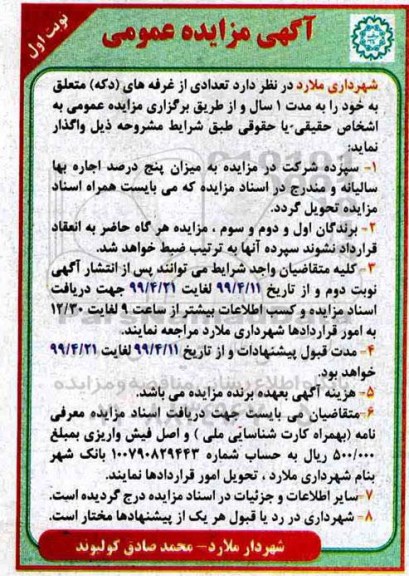 آگهی مزایده عمومی
نوبت اول
شهرداری ملارد در نظر دارد تعدادی از غرفه های (دکه) متعلق
به خود را به مدت ۱ سال و از طریق برگزاری مزایده عمومی به
اشخاص حقیقی یا حقوقی طبق شرایط مشروحه ذیل واگذار
نماید:
۱- سپرده شرکت در مزایده به میزان پنج درصد اجاره بها
سالیانه و مندرج در اسناد مزایده که می بایست همراه اسناد
مزایده تحویل گردد.
۲- برندگان اول و دوم و سوم ، مزایده هر گاه حاضر به انعقاد
قرارداد نشوند سپرده آنها به ترتیب ضبط خواهد شد.
۳- کلیه متقاضیان واجد شرایط می توانند پس از انتشار آگهی
نوبت دوم و از تاریخ ۹۹/۴/۱۱ لغایت ۹۹/۴/۲۱ جهت دریافت
اسناد مزایده و کسب اطلاعات بیشتر از ساعت ۹ لغایت ۱۲/۳۰
به امور قراردادها شهرداری ملارد مراجعه نمایند.
۴- مدت قبول پیشنهادات و از تاریخ ۹۹/۴/۱۱ لغایت ۹۹/۴/۲۱
خواهد بود.
۵- هزینه آگهی بعهده برنده مزایده می باشد.
۶- متقاضیان می بایست جهت دریافت اسناد مزایده معرفی
نامه (بهمراه کارت شناسایی ملی ) و اصل فیش واریزی بمبلغ
۵۰۰/۰۰۰ ریال به حساب شماره ۱۰۰۷۹۰۸۲۹۴۴۳ بانک شهر
بنام شهرداری ملارد ، تحویل امور قراردادها نمایند.
۷- سایر اطلاعات و جزئیات در اسناد مزایده درج گردیده است.
۸- شهرداری در رد یا قبول هر یک از پیشنهادها مختار است.
شهردار ملارد- محمد صادق کولیوند